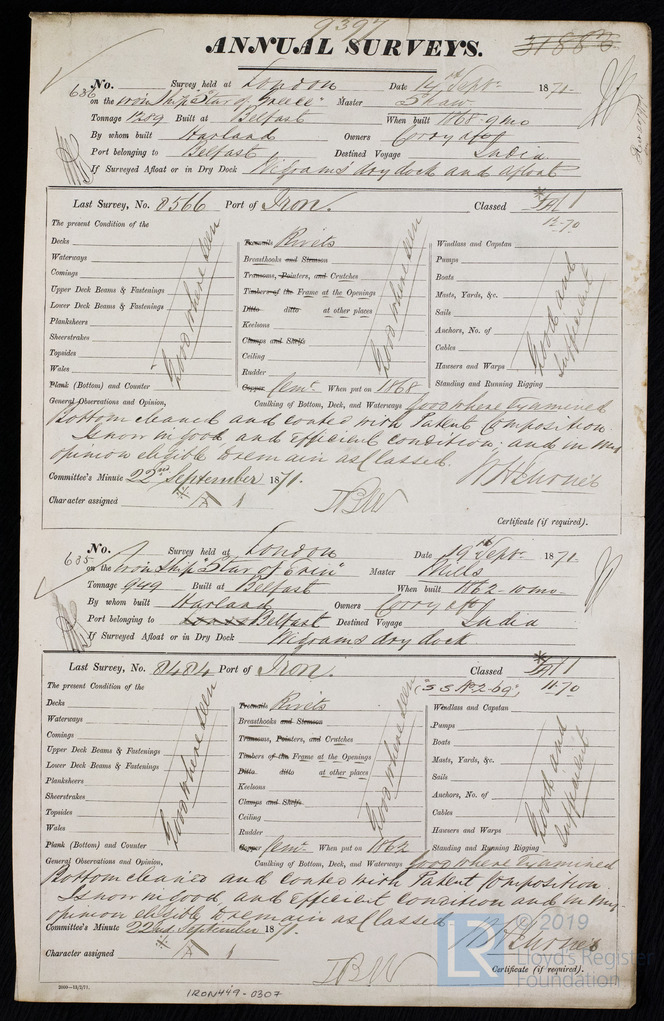 9397
ANNUAL SURVEYS.
No. 636 Survey held at London Date 14th Septr. 1871
on the Iron Ship "Star of Greece" Master Shaw
Tonnage 1289 Built at Belfast When built 1868. 9 mo
By whom built Harland Owners Corry & Co
Port belonging to Belfast Destined Voyage India
If Surveyed Afloat or in Dry Dock Wigrams dry dock and afloat
Last Survey, No. 8566 Port of Iron. Classed A 1
12-70
The present Condition of the
Decks
Waterways
Comings
Upper Deck Beams & Fastenings
Lower Deck Beams & Fastenings
Planksheers
Sheerstrakes
Topsides
Wales
Plank (Bottom) and Counter
Good where seen
Treenails Rivets
Breasthooks and Stemson
Transoms, Pointers, and Crutches
Timbers of the Frame at the Openings
Ditto ditto at other places
Keelsons
Clamps and Shelfs
Ceiling
Rudder
Copper Cemt. When put on 1868
Good where seen
Windlass and Capstan
Pumps
Boats
Masts, Yards, &c.
Sails
Anchors, No. of
Cables
Hawsers and Warps
Standing and Running Rigging
Good and Sufficient
General Observations and Opinion, Caulking of Bottom, Deck, and Waterways Good where Examined
Bottom cleaned and coated with Patent Composition
Is now in good and Efficient condition; and in my
opinion eligible to remain as Classed.
Committee's Minute 22nd September 1871.
Character assigned A 1
Certificate (if required).
No. 635 Survey held at London Date 19th Septr. 1871
on the Iron Ship "Star of Erin" Master Mills
Tonnage 949 Built at Belfast When built 1862-10 mo
By whom built Harland Owners Corry & Co
Port belonging to Belfast Destined Voyage India
If Surveyed Afloat or in Dry Dock Wigrams dry dock
Last Survey, No. 8484 Port of Iron. Classed A 1
(S S No 2-69) 11-70
The present Condition of the
Decks
Waterways
Comings
Upper Deck Beams & Fastenings
Lower Deck Beams & Fastenings
Planksheers
Sheerstrakes
Topsides
Wales
Plank (Bottom) and Counter
Good where seen
Treenails Rivets
Breasthooks and Stemson
Transoms, Pointers, and Crutches
Timbers of the Frame at the Openings
Ditto ditto at other places
Keelsons
Clamps and Shelfs
Ceiling
Rudder
Copper Cemt. When put on 1862
Good where seen
Windlass and Capstan
Pumps
Boats
Masts, Yards, &c.
Sails
Anchors, No. of
Cables
Hawsers and Warps
Standing and Running Rigging
Good and Sufficient
General Observations and Opinion, Caulking of Bottom, Deck, and Waterways Good where Examined
Bottom cleaned and coated with Patent Composition
Is now in good, and Efficient condition and in my
opinion eligible to remain as Classed
Committee's Minute 22nd September 1871.
Character assigned A 1
Certificate (if required).
2000—13/2/71.
IRON449-0307
© 2019
LR
Lloyd's Register
Foundation